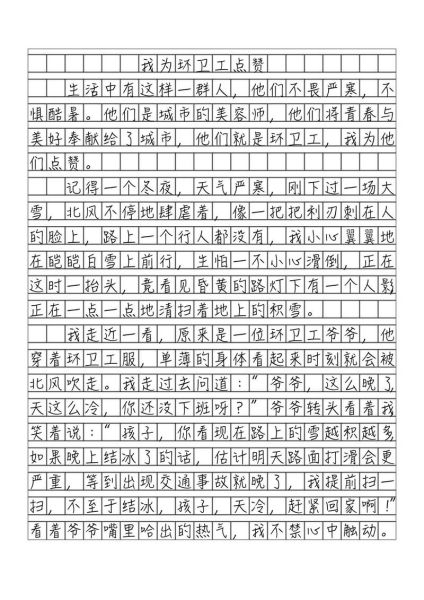 我为环卫工点赞
生活中有这样一群人，他们不畏严寒，不
惧酷暑。他们是城市的美容师，他们将青春与
美好奉献给了城市，他们就是环卫工，我为他
们点赞。
记得一个冬夜，天气严寒，刚下过一场大
雪，北风不停地肆虐着，像一把把利刃刺在人
的脸上，路上一个行人都没有，我小心翼翼地
在皑皑白雪上前行，生怕一不小心滑倒，正在
这时一抬头，竟看见昏黄的路灯下有一个人影
正在一点一点地清扫着地上的积雪。
我走近一看，原来是一位环卫工爷爷，他
穿着环卫工服，单薄的身体看起来时刻就会被
北风吹走。我走过去问道：“爷爷，这么晚了，
天这么冷，你还没下班呀？”爷爷转头看着我
笑着说：“孩子，你看现在路上的雪越积越多
如果晚上结冰了的话，估计明天路面打滑会更
严重，等到出现交通事故就晚了，我提前扫一
扫，不至于结冰，孩子，天冷，赶紧回家啊！”
看着爷爷嘴里哈出的热气，我不禁心中触动。